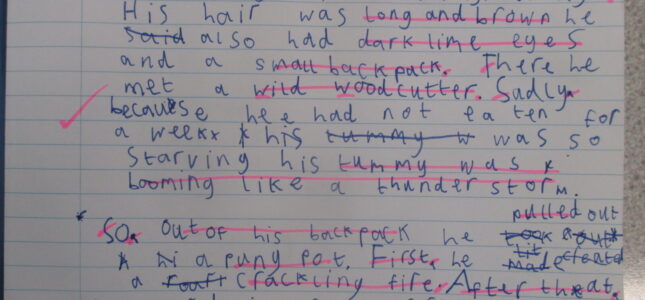 His hair was long and brown he
said also had dark lime eyes
and a small backpack. There he
met a wild woodcutter. Sadly
because he had not eaten for
a week his tummy w was so
starving his tummy was
booming like a thunder storm.
pulled out
* So, out of his backpack he took out
lit created
a puny pot. First, he made
a roaft crackling fire. After that,